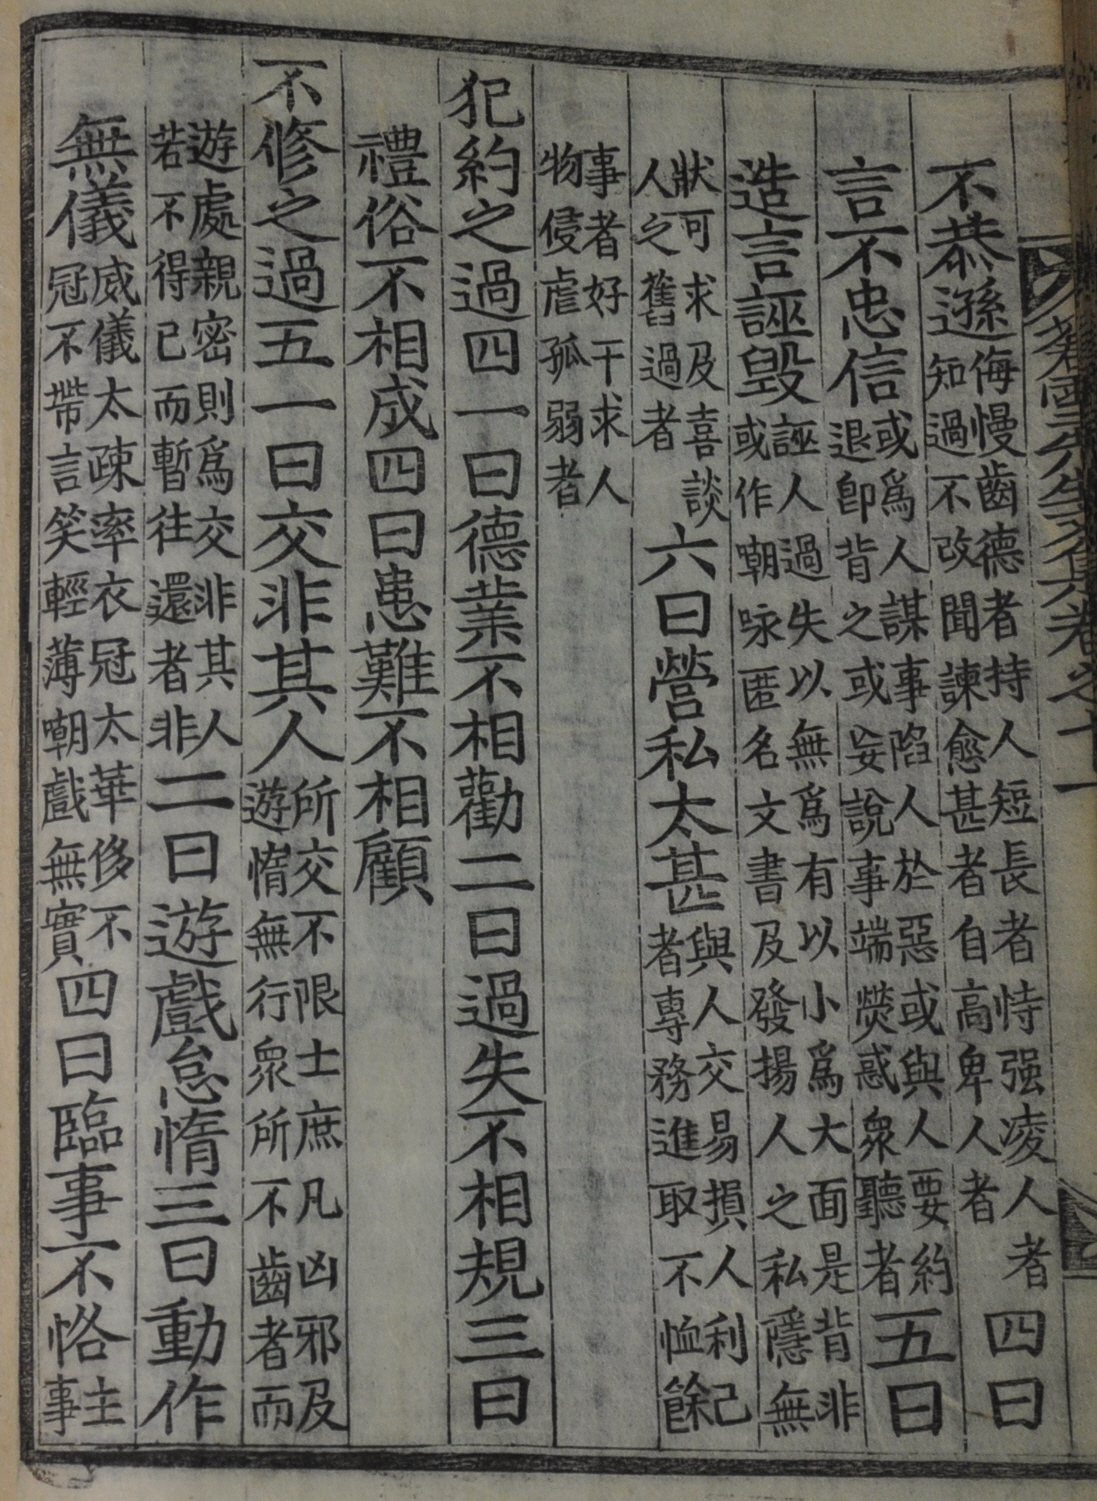 蒼雪先生文集卷之十一
不恭遜侮慢齒德者持人短長者恃强凌人者知過不改聞諫愈甚者自高卑人者四曰
言不忠信或爲人謀事陷人於惡或與人要約退卽背之或妄說事端熒惑衆聽者五曰
造言誣毁誣人過失以無爲有以小爲大面是背非或作嘲咏匿名文書及發揚人之私隱無
狀可求及喜談人之舊過者六曰營私太甚與人交易損人利己者專務進取不恤餘
事者好干求人物侵虐孤弱者
犯約之過四一曰德業不相勸二曰過失不相規三曰
禮俗不相成四曰患難不相顧
不修之過五一曰交非其人所交不限士庶凡凶邪及遊惰無行衆所不齒者而
遊處親密則爲交非其人若不得已而暫往還者非二曰遊戲怠惰三曰動作
無儀威儀太疎率衣冠太華侈不冠不帶言笑輕薄嘲戲無實四曰臨事不恪主事